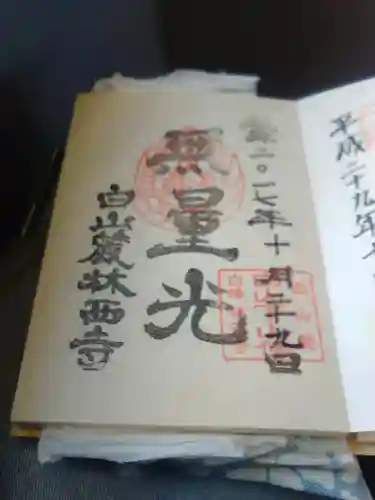 平成二十九年十
二〇一七年十月二十九日
無量光
白山麓林西寺